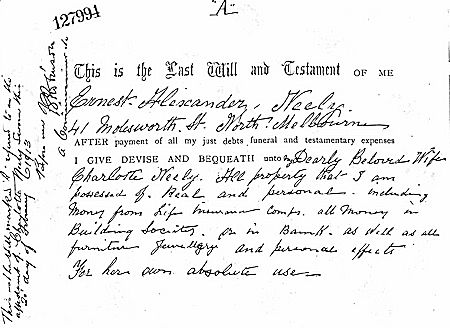 "A"
127994
This is the Last Will and Testament OF ME
Ernest Alexander, Neely.
41 Molesworth. St. North. Melbourne
AFTER payment of all my just debts funeral and testamentary expenses
I GIVE DEVISE AND BEQUEATH unto my Dearly Beloved Wife
Charlotte Neely. All property that I am
possessed of Real and personal. including
Money from Life Insurance Comps. all Money in
Building Society. or in Bank. as well as all
furniture Jewellery and personal effects
For her own absolute use
This is the will marked A referred to in the
affidavit of Charlotte Neely sworn this
day of February 1913
Before me
a Commissioner